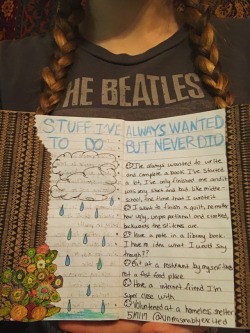 THE BEATLES
STUFF I'VE ALWAYS WANTED
TO DO BUT NEVER DID
① I've always wanted to write
and complete a book. I've started
a lot, I've only finished one and it
was very short and but like middle-
school, low time that I wrote it
② I want to finish a quilt, no matter
how ugly, unproportional and crooked,
backwards the stitches are.
③ Leave a note in a library book.
I have no idea what I would say
though??
④ Eat at a restaurant by myself that's
not a fast food place.
⑤ Have a internet friend I'm
super close with
⑥ Volunteered at a homeless shelter